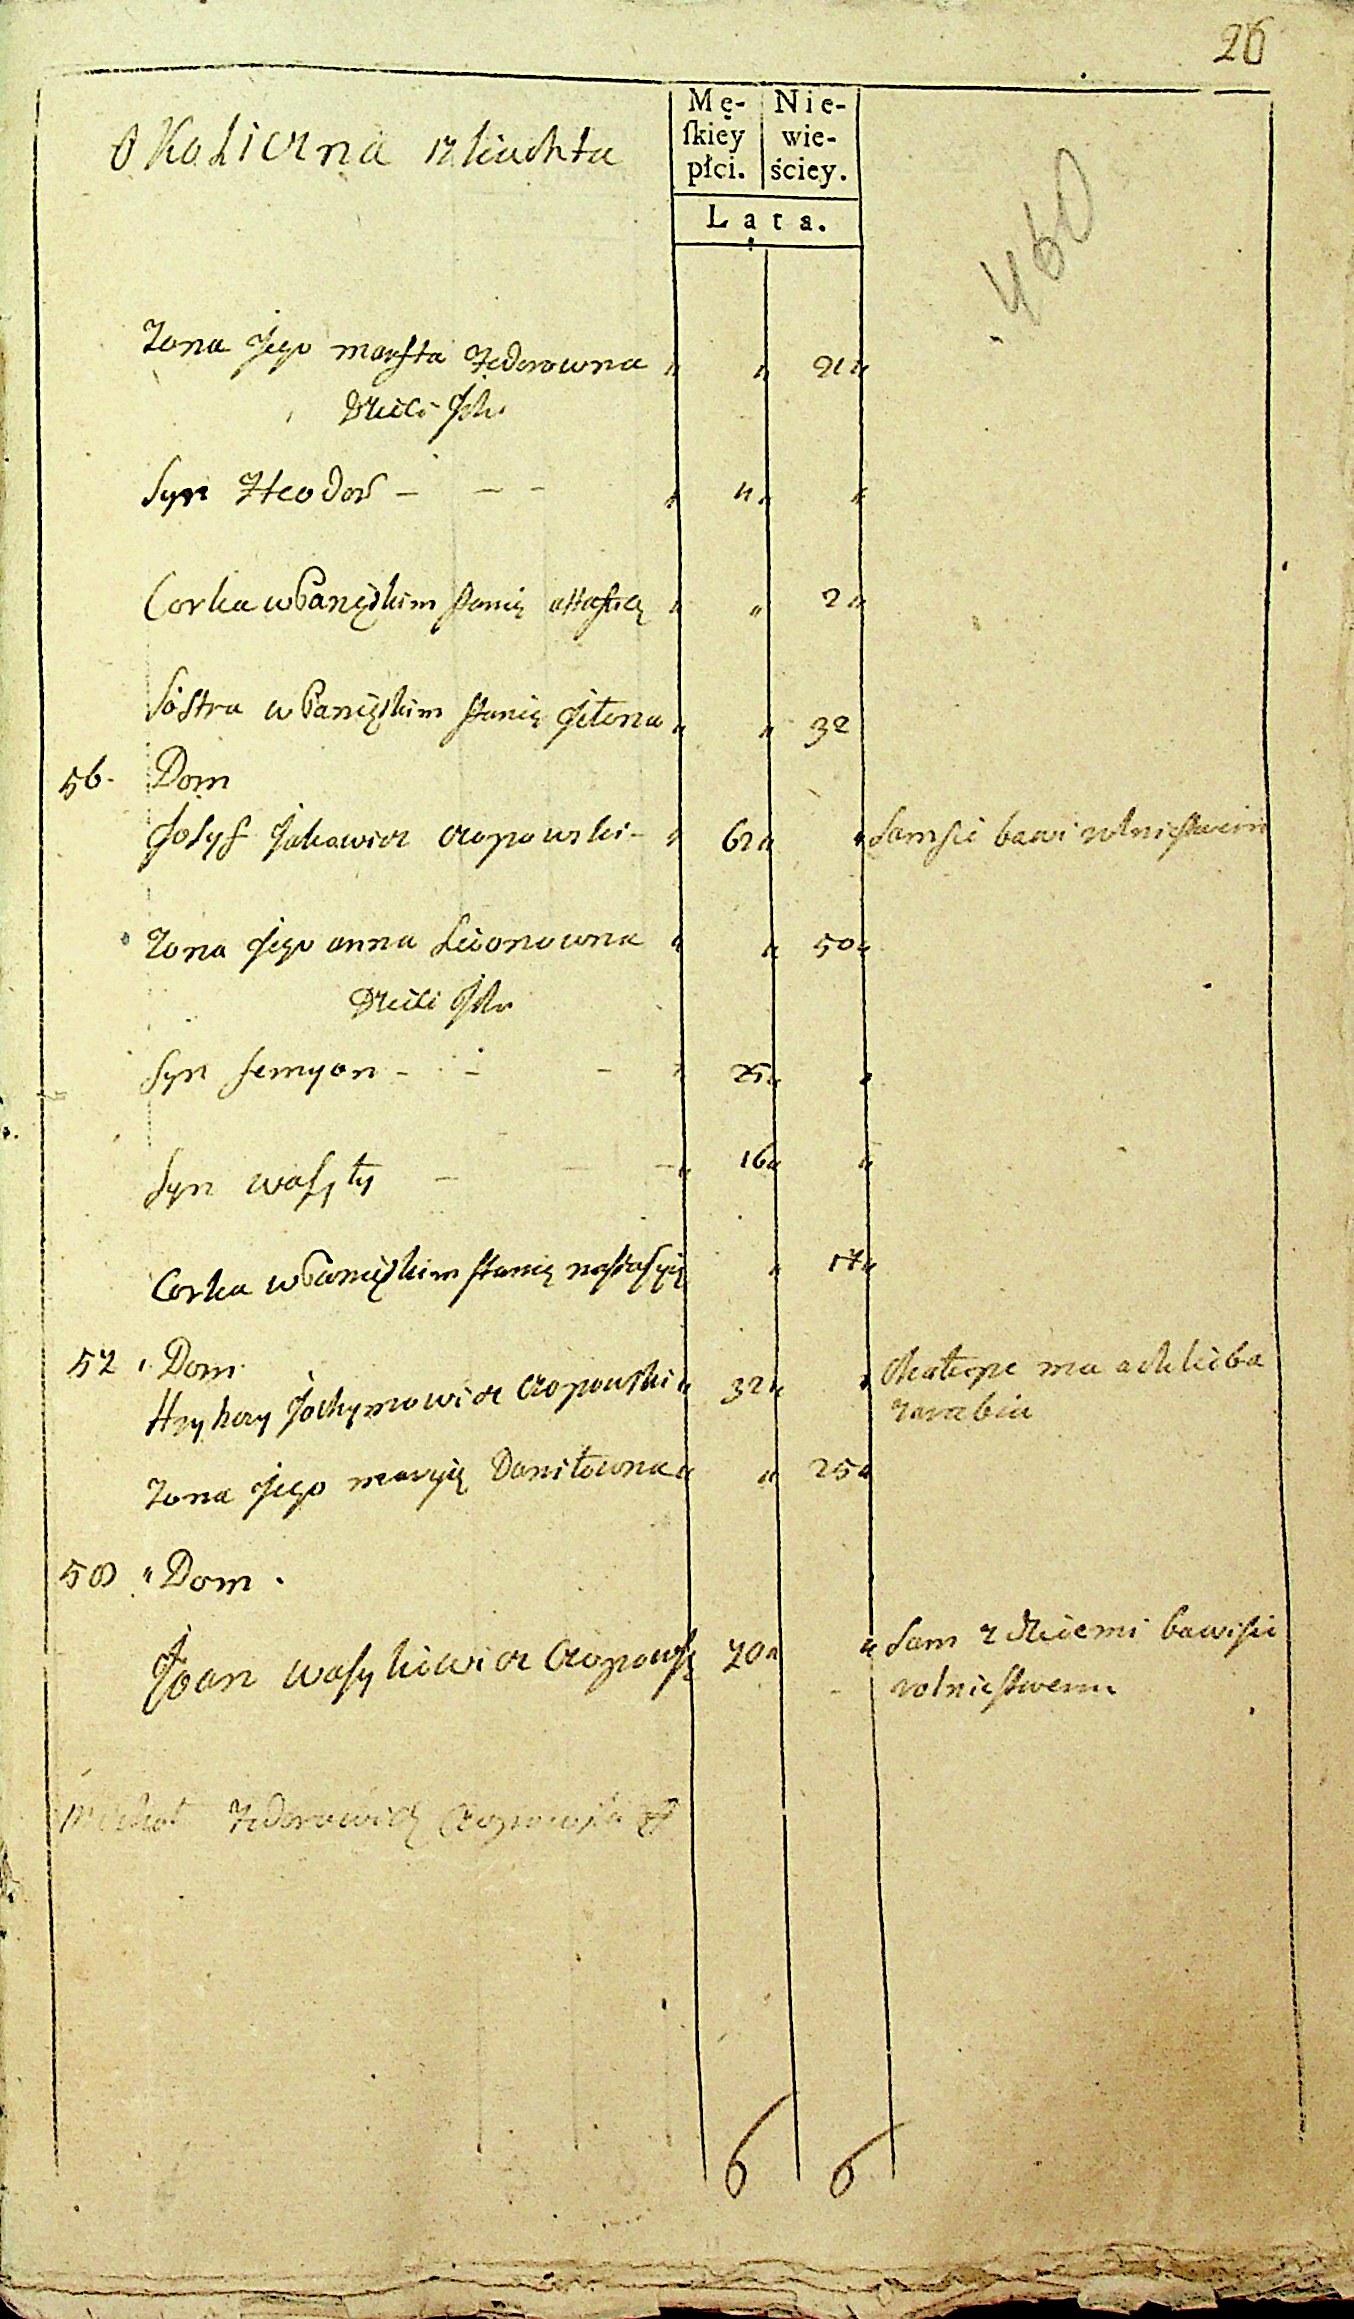 26
Okoliczna izliachta
Mę- Nie-
skiey wie-
płci. ściey.
Lata.
460
Zona Jego marfta Fedorowna " " 21 "
Dzieci Jch
Syn Fteodor - - - " 4 " "
Corka w Panęskim stanię " " 2 "
Sostra w Panięskim stanię Jełena " " 32
56. Dom
Josyf Jakowicz Czopowski - " 62 " " Sam sie bawi rolnistwem
Zona Jego anna Leonowna " " 50 "
Dzieci Jch
Syn semyon - - - " 25 " "
Syn wasyły - - - " 16 " "
Corka w Panięskim stanię nastasyię " 17 "
57 Dom
Hryhory Jochymowicz Czopowski " 32 " " ma
zarabia
Zona Jego maryię Daniłowna " " 25 "
58 " Dom .
Joan wasyliewicz Czopowsk 70 " " Sam z dzieciemi bawi sie
rolnistwem
Michał Fedorowicz Czopowski
6 6